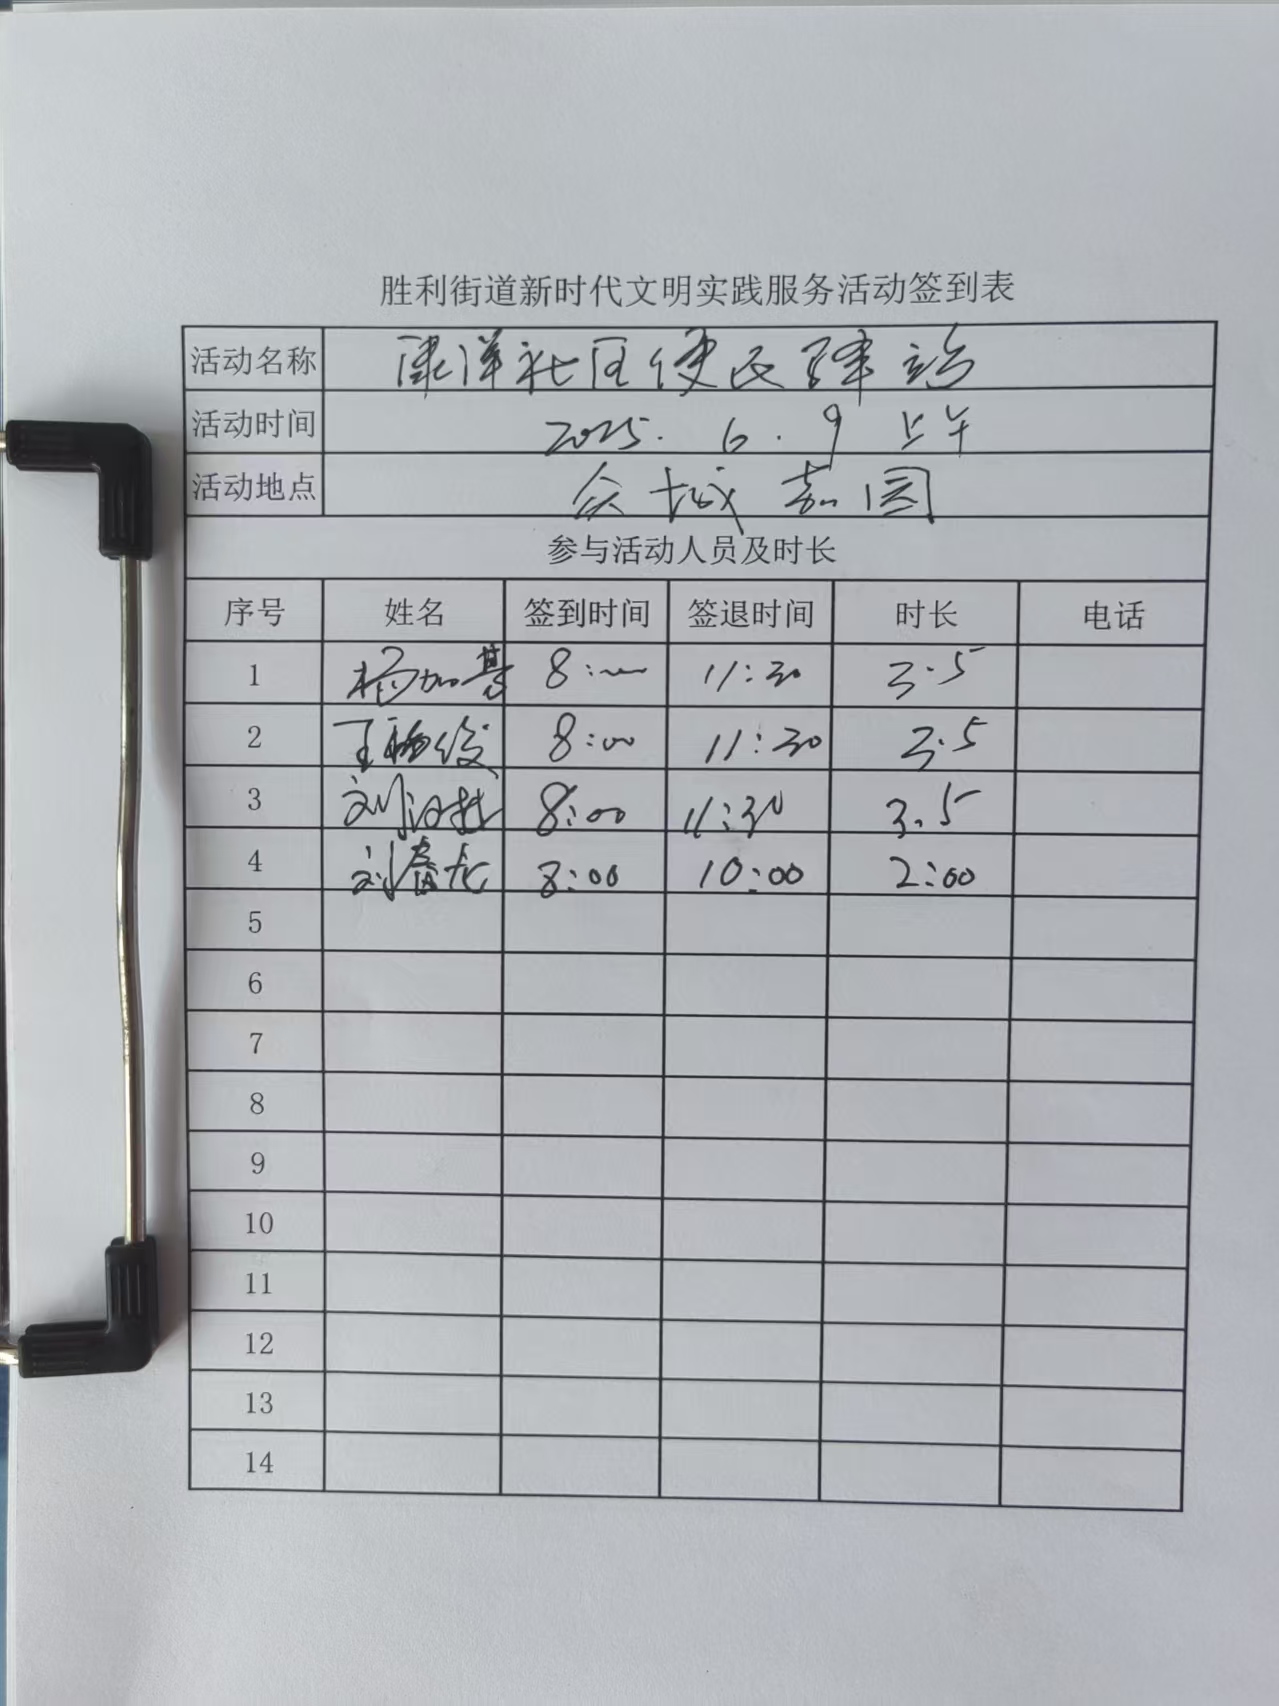 胜利街道新时代文明实践服务活动签到表
活动名称 康洋社区便民驿站
活动时间 2025. 6. 9 上午
活动地点 众城嘉园
参与活动人员及时长
序号 姓名 签到时间 签退时间 时长 电话
1 杨加基 8:00 11:30 3.5
2 王 8:00 11:30 3.5
3 刘 8:00 11:30 3.5
4 刘春龙 8:00 10:00 2:00
5
6
7
8
9
10
11
12
13
14